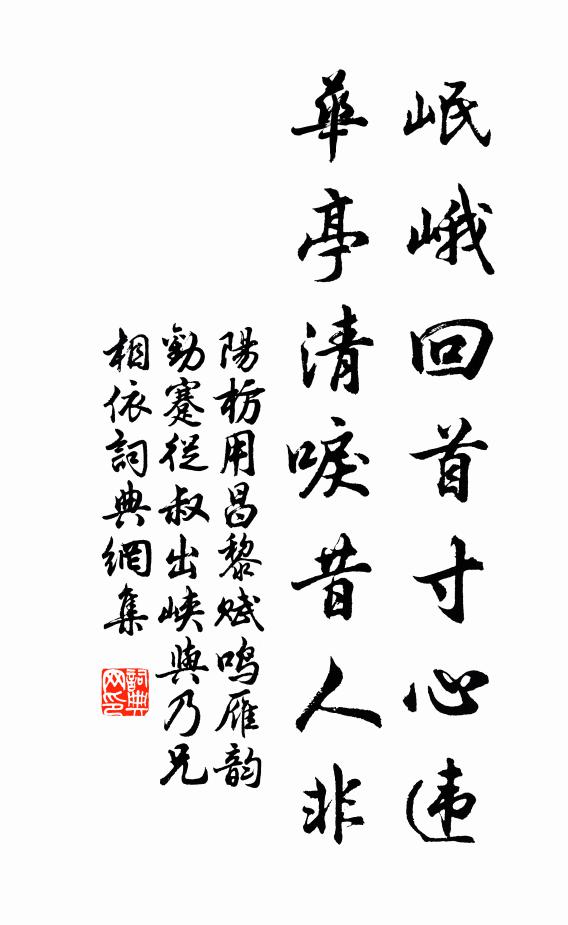 岷峨回首寸心违
華亭清唳昔人非
陽枋用昌黎赋鸣雁韵
勸蹇從叔出峡與乃兄
相依詞典網集
詞典网印